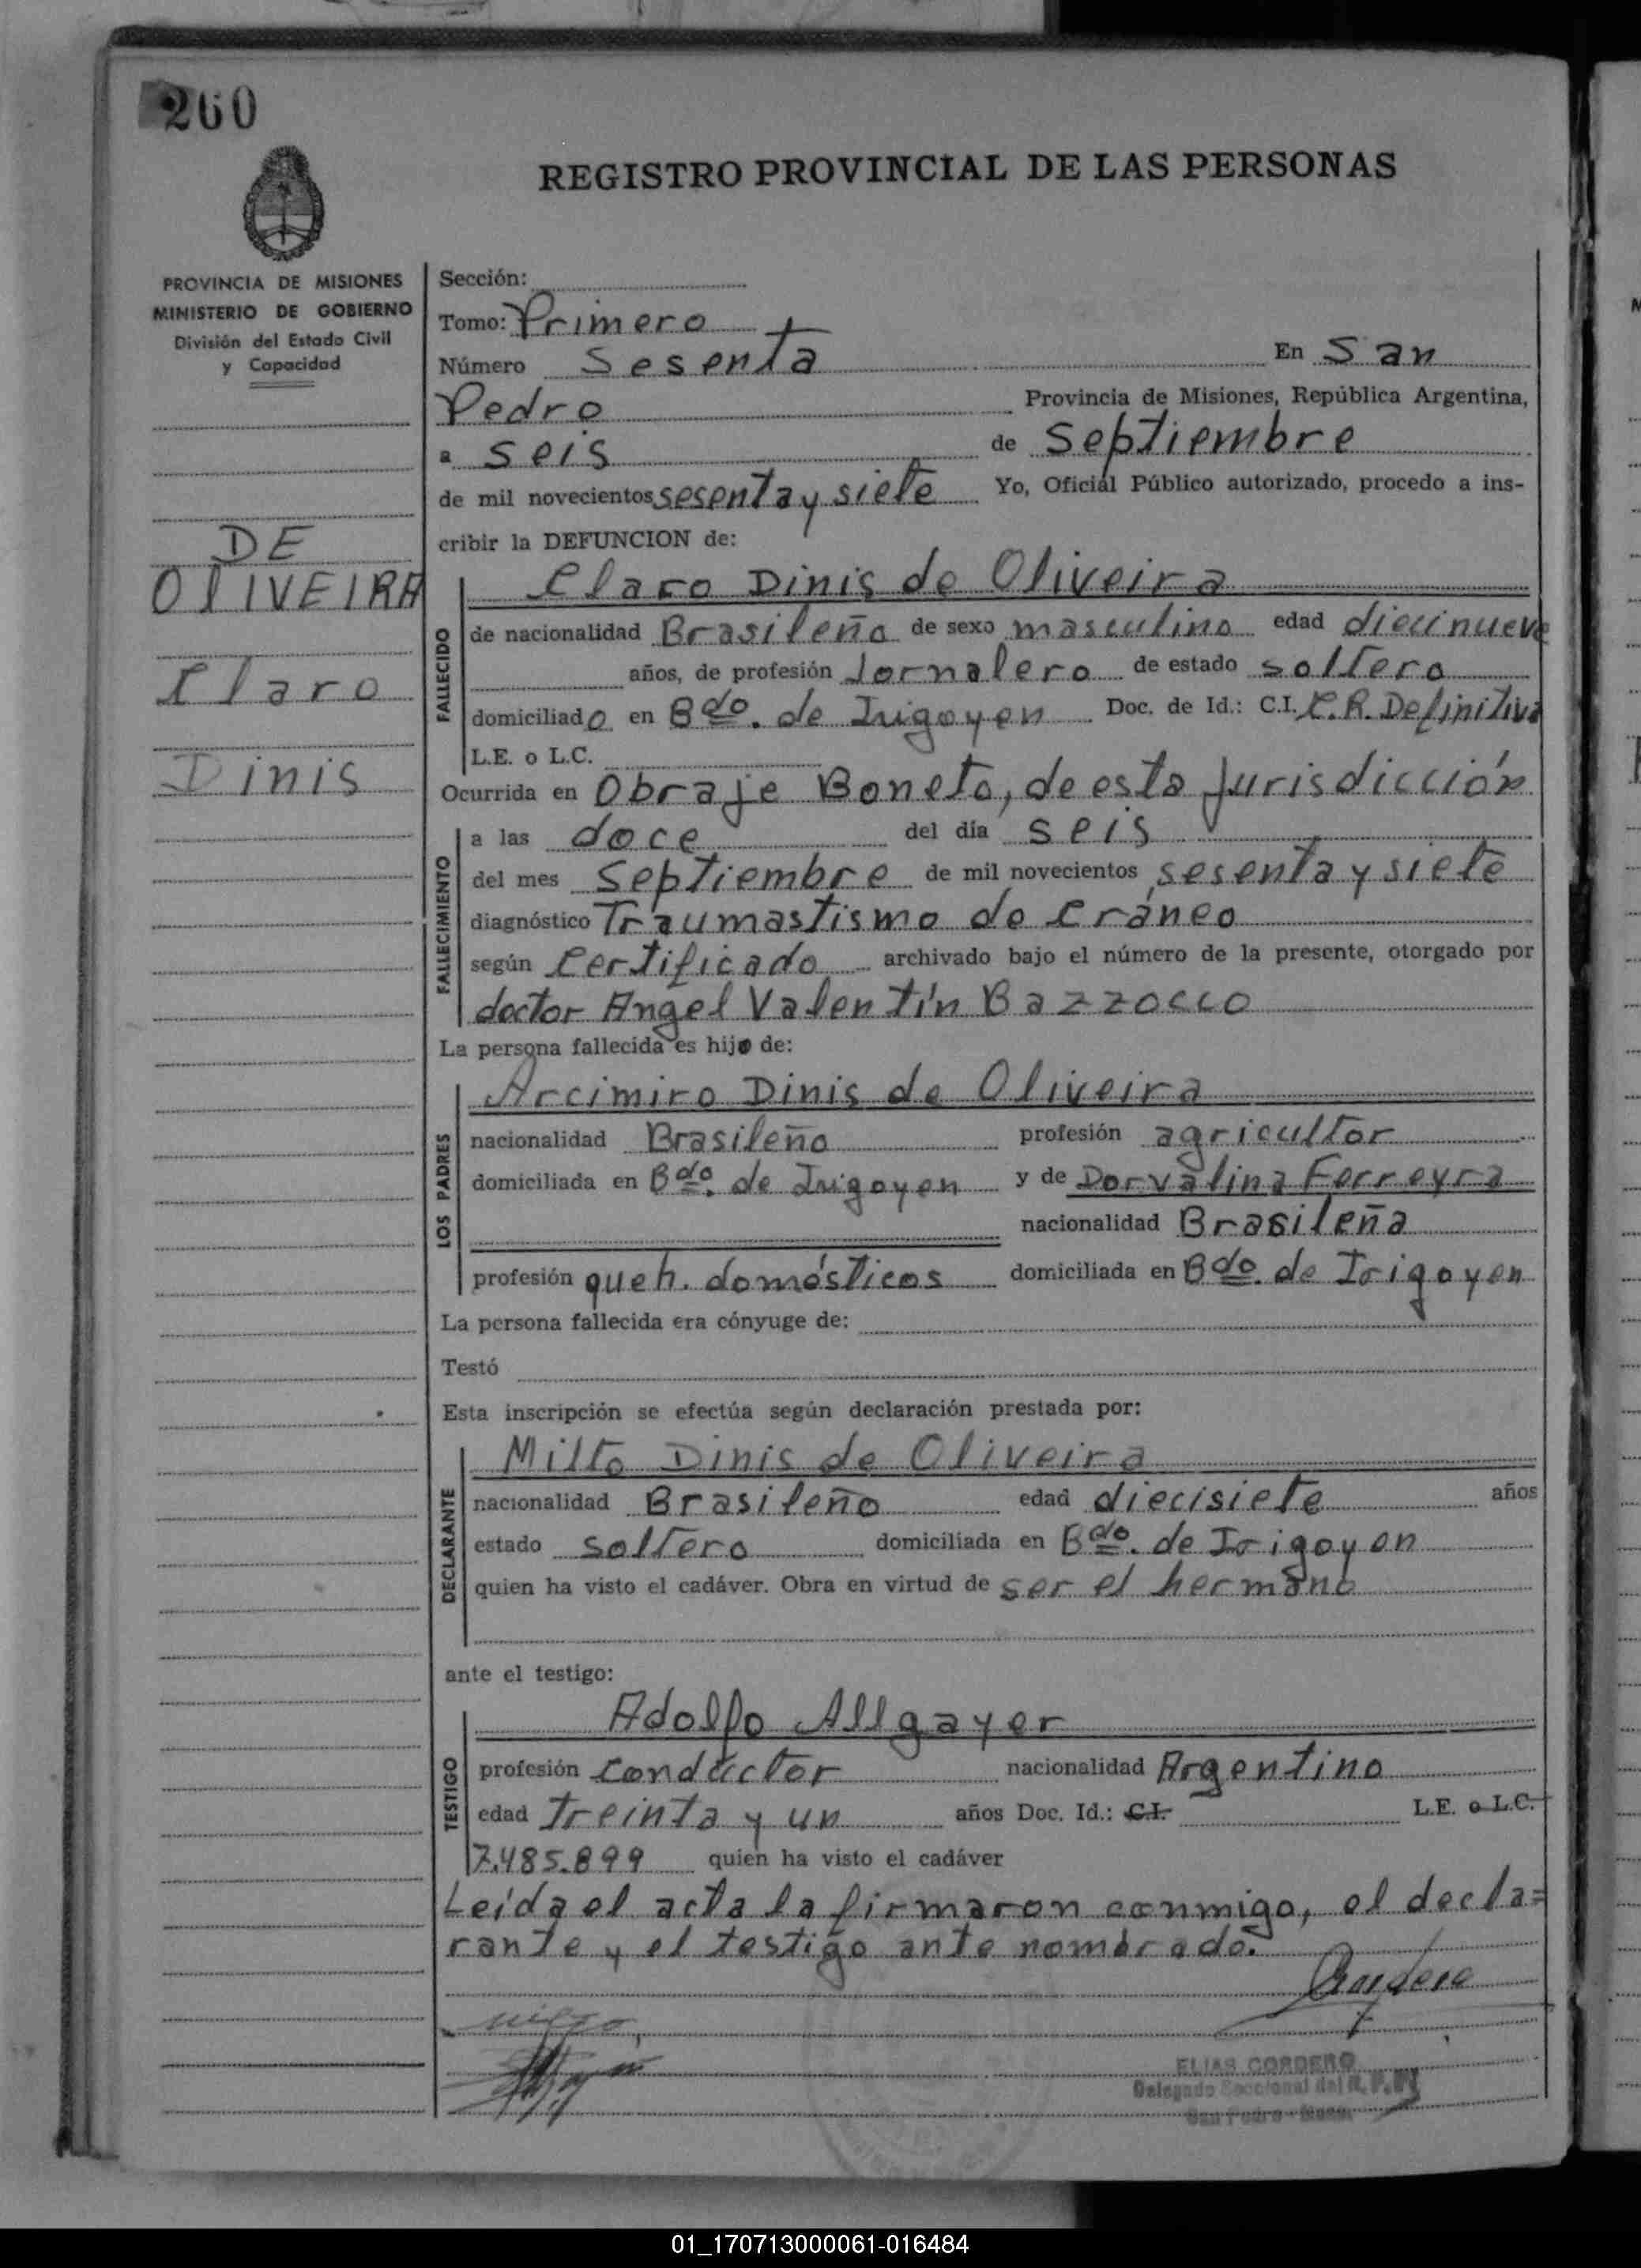 260
REGISTRO PROVINCIAL DE LAS PERSONAS
PROVINCIA DE MISIONES
MINISTERIO DE GOBIERNO
División del Estado Civil
y Capacidad
DE
OlIVEIRA
Claro
Dinis
Sección:
Tomo: Primero
Número Sesenta En San
Pedro Provincia de Misiones, República Argentina,
a seis de Septiembre
de mil novecientos sesenta y siete Yo, Oficial Público autorizado, procedo a ins-
cribir la DEFUNCION de:
Claro Dinis de Oliveira
FALLECIDO
de nacionalidad Brasileño de sexo masculino edad diecinueve
años, de profesión Jornalero de estado soltero
domiciliado en Bdo. de Irigoyen Doc. de Id.: C.I. C.R. Definitiva
L.E. o L.C.
Ocurrida en Obraje Boneto, de esta Jurisdicción
FALLECIMIENTO
a las doce del día seis
del mes Septiembre de mil novecientos sesenta y siete
diagnóstico Traumastismo de Cráneo
según Certificado archivado bajo el número de la presente, otorgado por
doctor Angel Valentín Bazzocco
La persona fallecida es hijo de:
LOS PADRES
Arcimiro Dinis de Oliveira
nacionalidad Brasileño profesión agricultor
domiciliada en Bdo. de Irigoyen y de Dorvalina Ferreyra
nacionalidad Brasileña
profesión queh. domésticos domiciliada en Bdo. de Irigoyen
La persona fallecida era cónyuge de:
Testó
Esta inscripción se efectúa según declaración prestada por:
DECLARANTE
Milto Dinis de Oliveira
nacionalidad Brasileño edad diecisiete años
estado soltero domiciliada en Bdo. de Irigoyen
quien ha visto el cadáver. Obra en virtud de ser el hermano
ante el testigo:
TESTIGO
Adolfo Allgayer
profesión Conductor nacionalidad Argentino
edad treinta y un años Doc. Id.: C.I. L.E. o L.C.
7.485.899 quien ha visto el cadáver
Leída el acta la firmaron conmigo, el decla=
rante y el testigo ante nombrado.
Cordero
ELIAS CORDERO
Delegado Seccional del R. P. P.
San Pedro - Mnes.
01_170713000061-016484